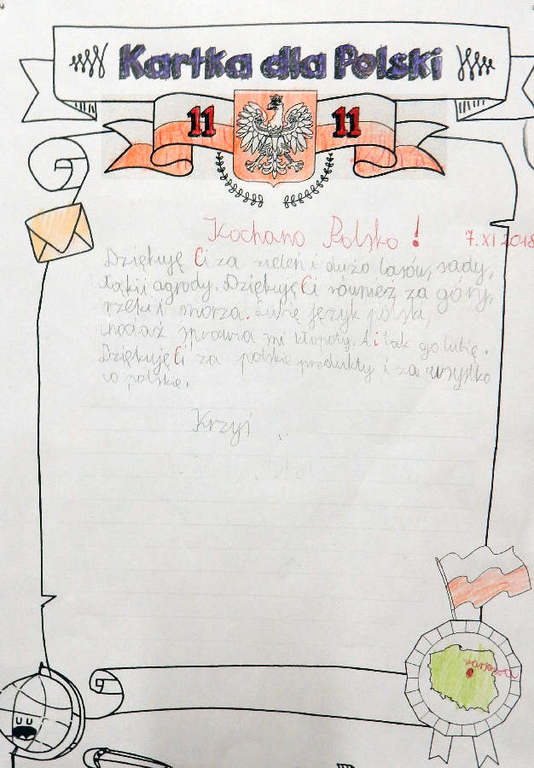 Kartka dla Polski
11 11
Kochana Polsko! 7.XI 2018
Dziękuję Ci za zieleń i dużo lasów, sady,
łąki i ogrody. Dziękuję Ci również za góry,
rzeki i morza. Lubię język polski,
chociaż sprawia mi kłopoty. A i tak go lubię.
Dziękuję Ci za polskie produkty i za wszystko
co polskie.
Krzyś